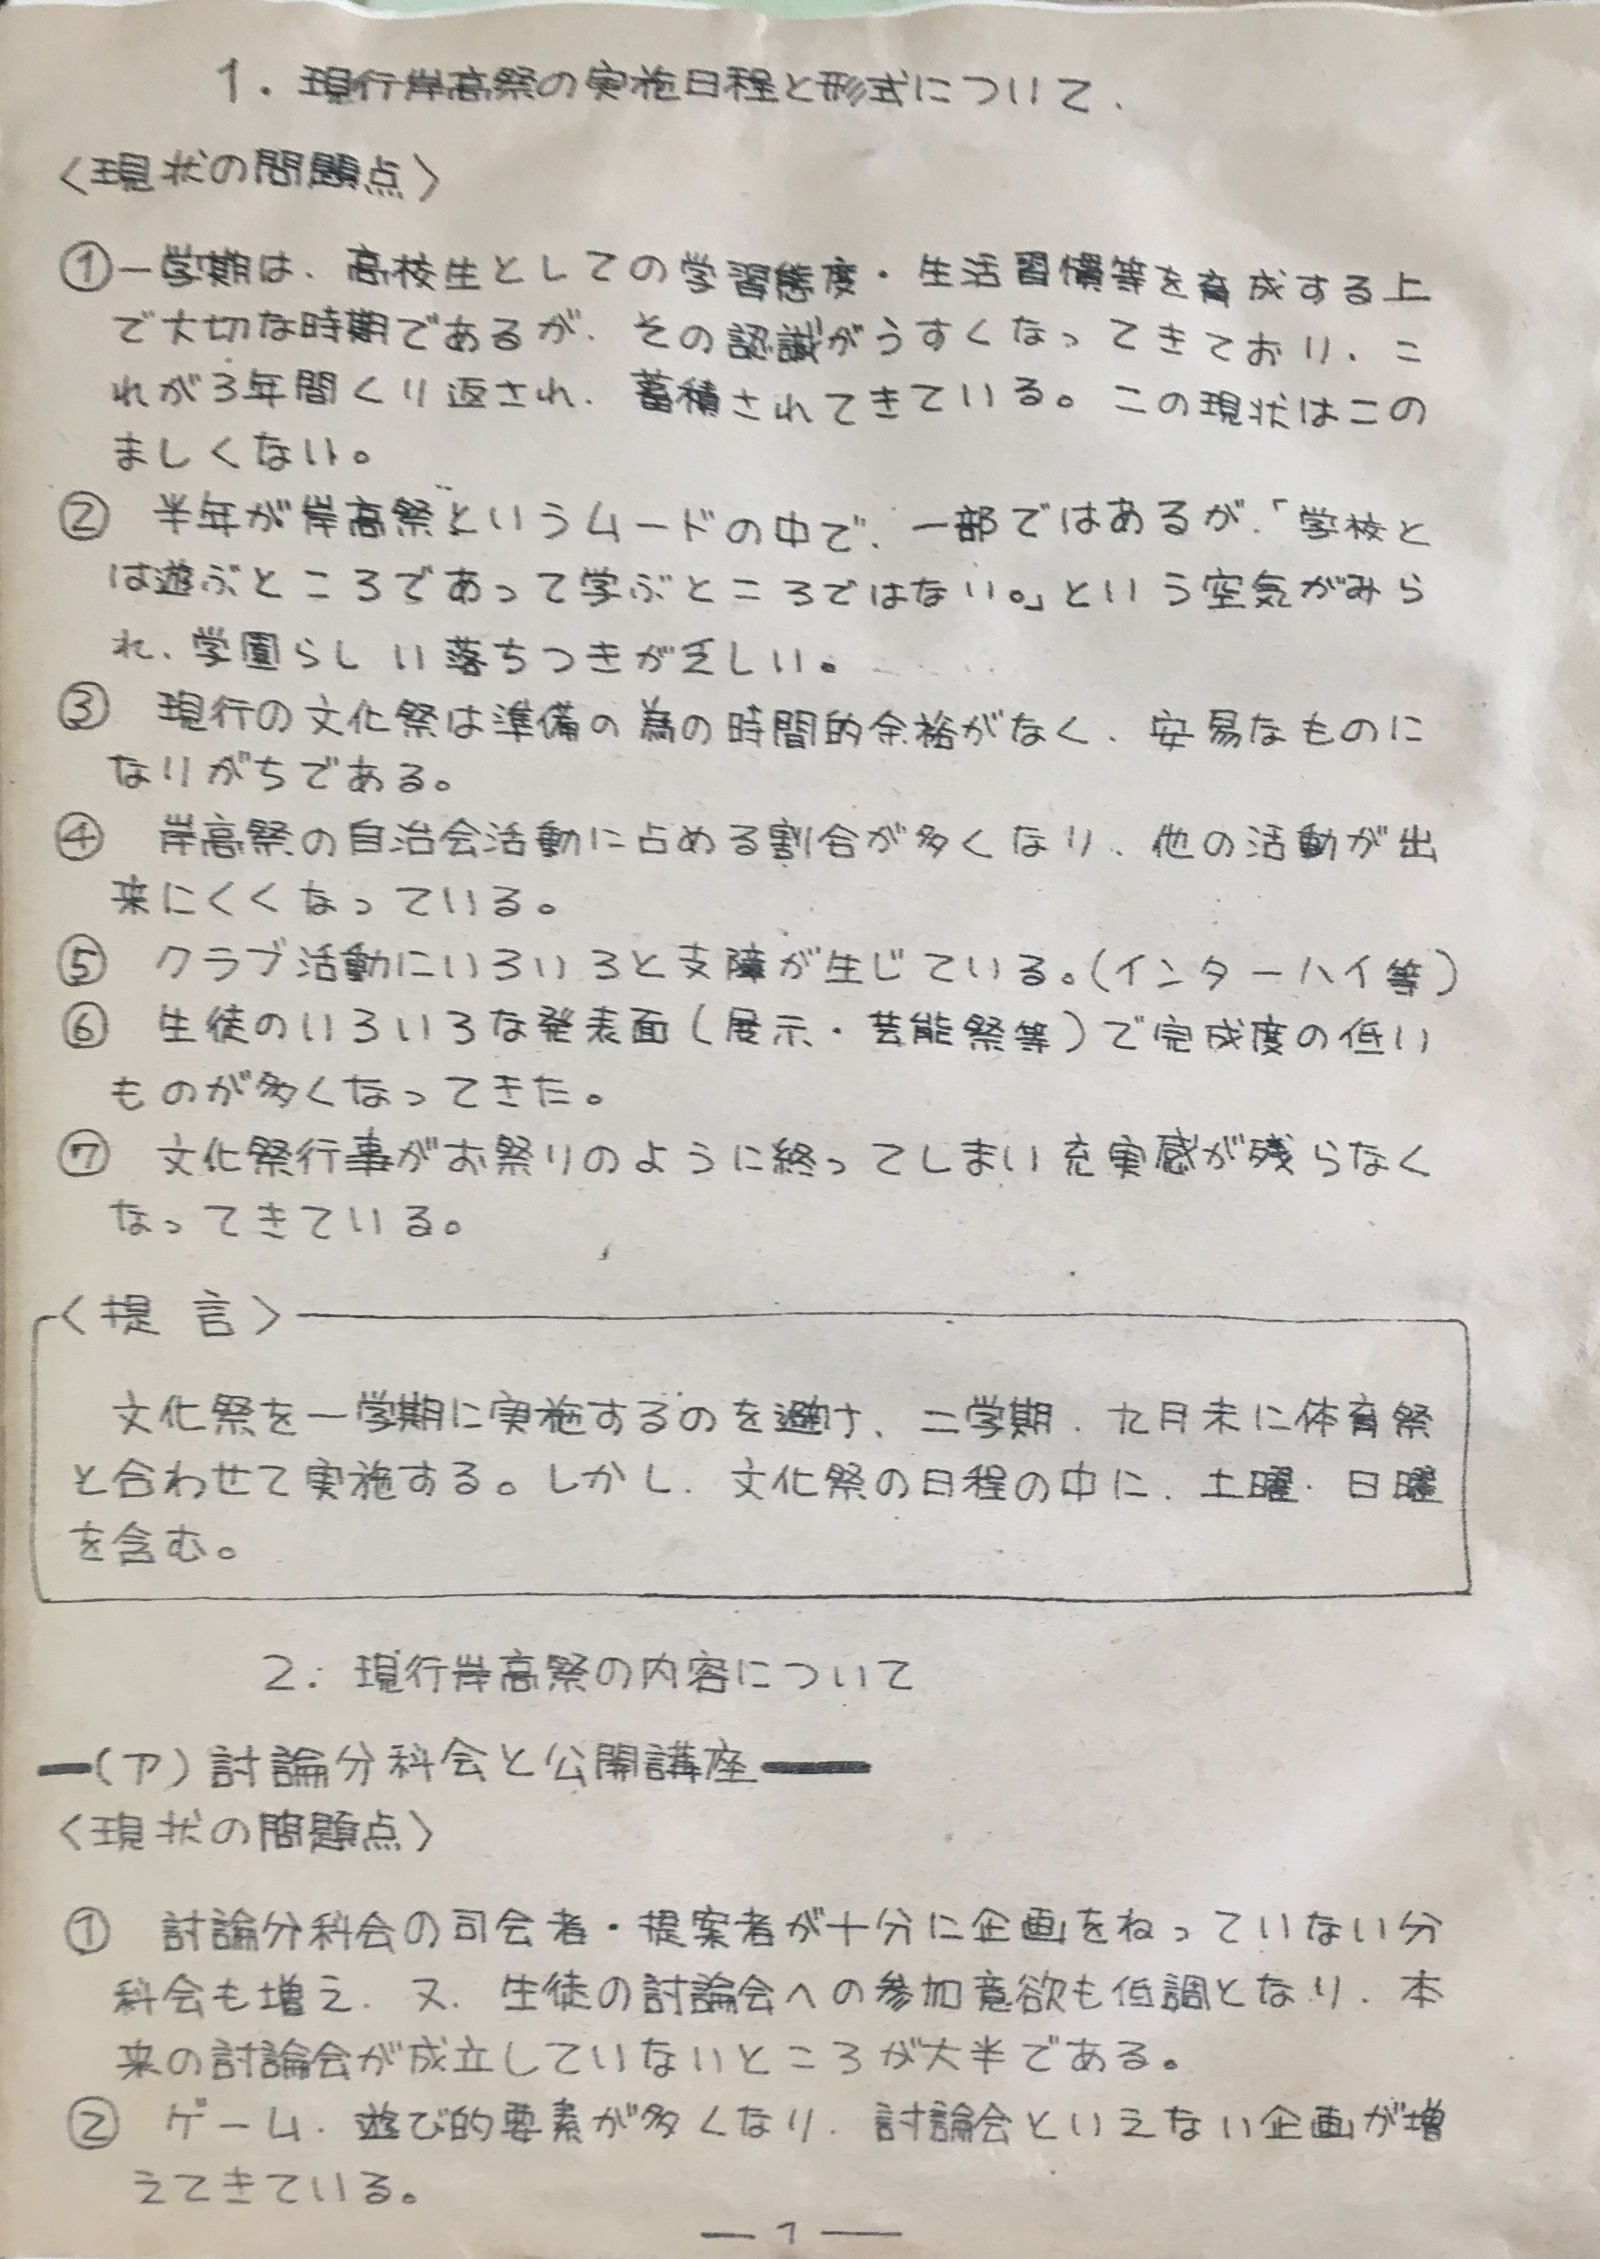 1. 現行岸高祭の実施日程と形式について.
〈現状の問題点〉
①一学期は、高校生としての学習態度・生活習慣等を育成する上
で大切な時期であるが、その認識がうすくなってきており、こ
れが3年間くり返され、蓄積されてきている。この現状はこの
ましくない。
② 半年が岸高祭というムードの中で、一部ではあるが、「学校と
は遊ぶところであって学ぶところではない。」という空気がみら
れ、学園らしい落ちつきが乏しい。
③ 現行の文化祭は準備の為の時間的余裕がなく、安易なものに
なりがちである。
④ 岸高祭の自治会活動に占める割合が多くなり、他の活動が出
来にくくなっている。
⑤ クラブ活動にいろいろと支障が生じている。(インターハイ等)
⑥ 生徒のいろいろな発表面(展示・芸能祭等)で完成度の低い
ものが多くなってきた。
⑦ 文化祭行事がお祭りのように終ってしまい充実感が残らなく
なってきている。
〈提 言〉
文化祭を一学期に実施するのを避け、二学期、九月末に体育祭
と合わせて実施する。しかし、文化祭の日程の中に、土曜・日曜
を含む。
2. 現行岸高祭の内容について
━(ア)討論分科会と公開講座━━
〈現状の問題点〉
① 討論分科会の司会者・提案者が十分に企画をねっていない分
科会も増え、又、生徒の討論会への参加意欲も低調となり、本
来の討論会が成立していないところが大半である。
② ゲーム、遊び的要素が多くなり、討論会といえない企画が増
えてきている。
— 1 —